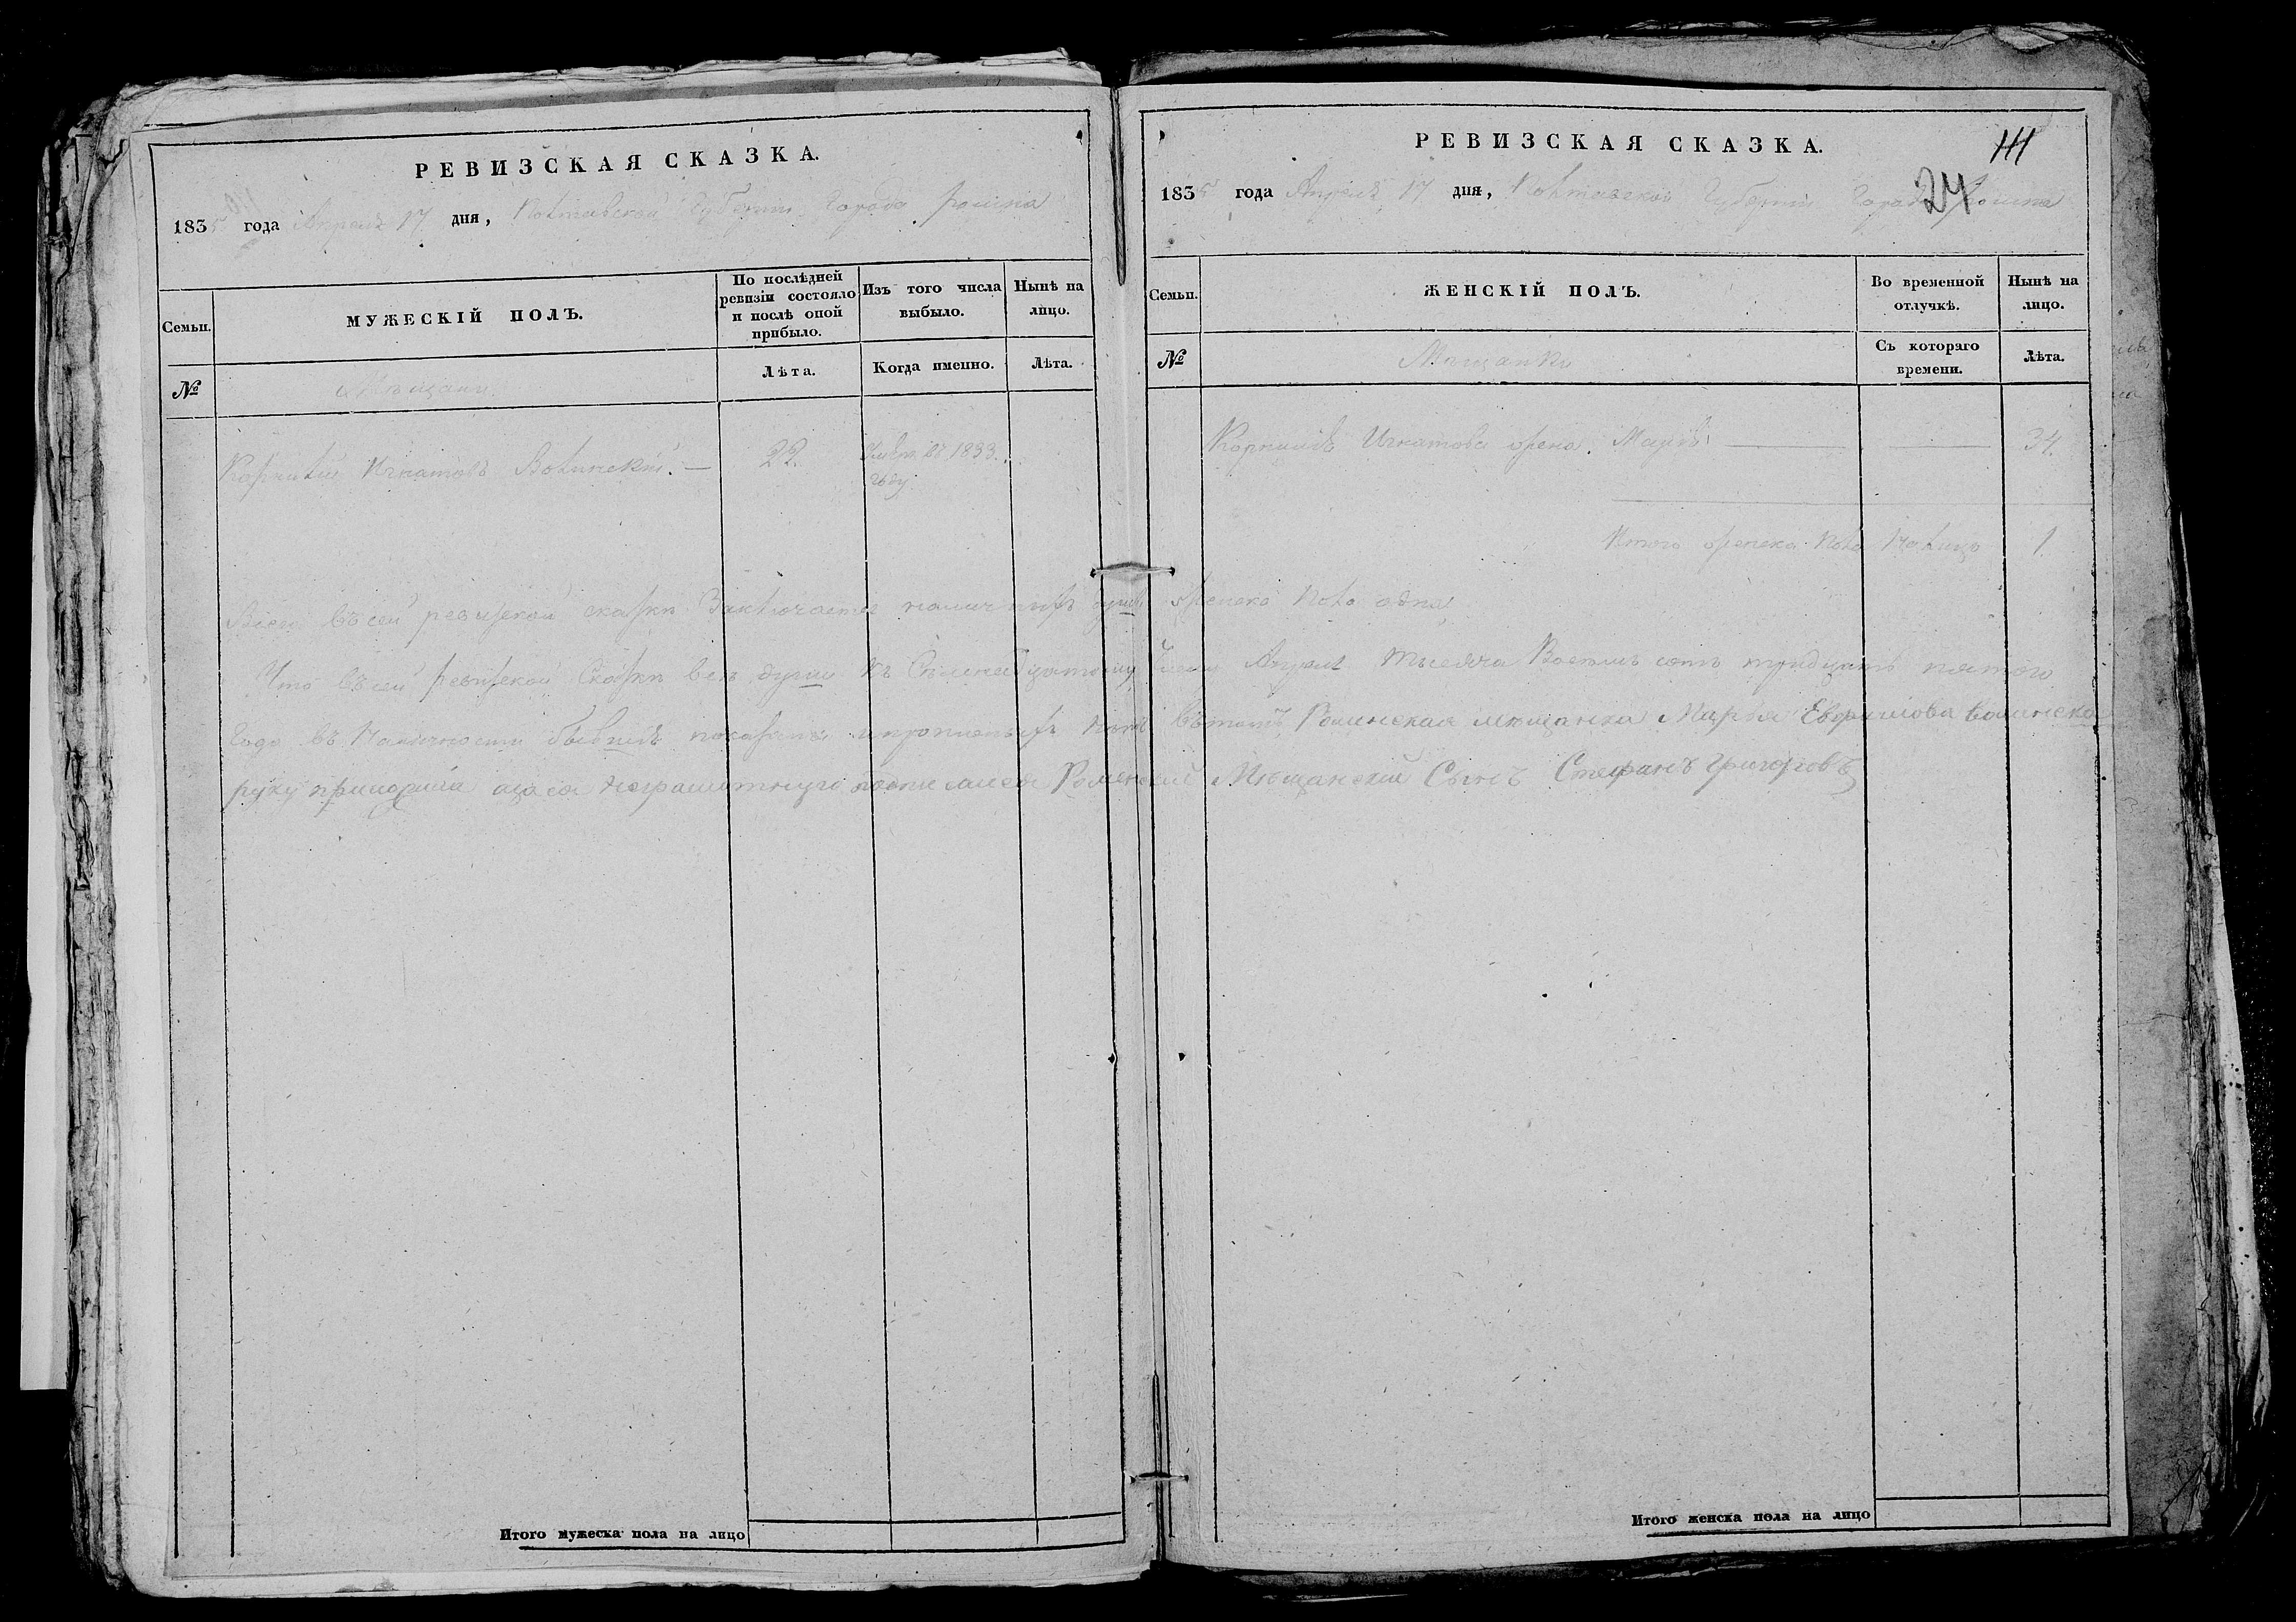 РЕВИЗСКАЯ СКАЗКА.
1835 года Апреля 17 дня, Полтавской Губернии Города Ромна
Семьи.
МУЖЕСКІЙ ПОЛЪ.
По послѣдней ревизіи состояло и послѣ оной прибыло.
Изъ того числа выбыло.
Нынѣ на лицо.
№
Мѣщани
Лѣта.
Когда именно.
Лѣта.
Игнатовъ Волинскій. — 22. 1833. году
Итого мужеска пола на лицо
111
РЕВИЗСКАЯ СКАЗКА.
24
1835 года Апреля 17 дня, Полтавской Губерніи Города Ромна
Семьи.
ЖЕНСКІЙ ПОЛЪ.
Во временной отлучкѣ.
Нынѣ на лицо.
№
Мещанки
Съ котораго времени.
Лѣта.
Корнилія Игнатова жена. 34.
Итого женска пола налицо 1.
Всего въ сей ревизской сказки Заключается наличныхъ душъ женска пола одна
Что въ сей ревизской Сказки всѣ души къ Апреля тысяча Восемь сотъ тридцать пятого
Года въ Наличности бывшія показаны и пропиеныхъ нѣтъ въ томъ Роменская мещанка Марья Евфимова Волинска
руку неграмотную Роменскій Мѣщанскій Сынъ Стефанъ Григорговъ
Итого женска пола на лицо